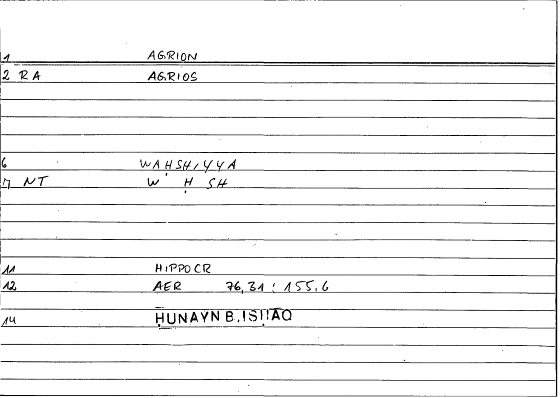 1 AGRION
2 RA AGRIOS
6 WAḤSHIYYA
7 NT W Ḥ SH
11 HIPPOCR
12 AER 76,31 : 155,6
14 ḤUNAYN B. ISḤAQ